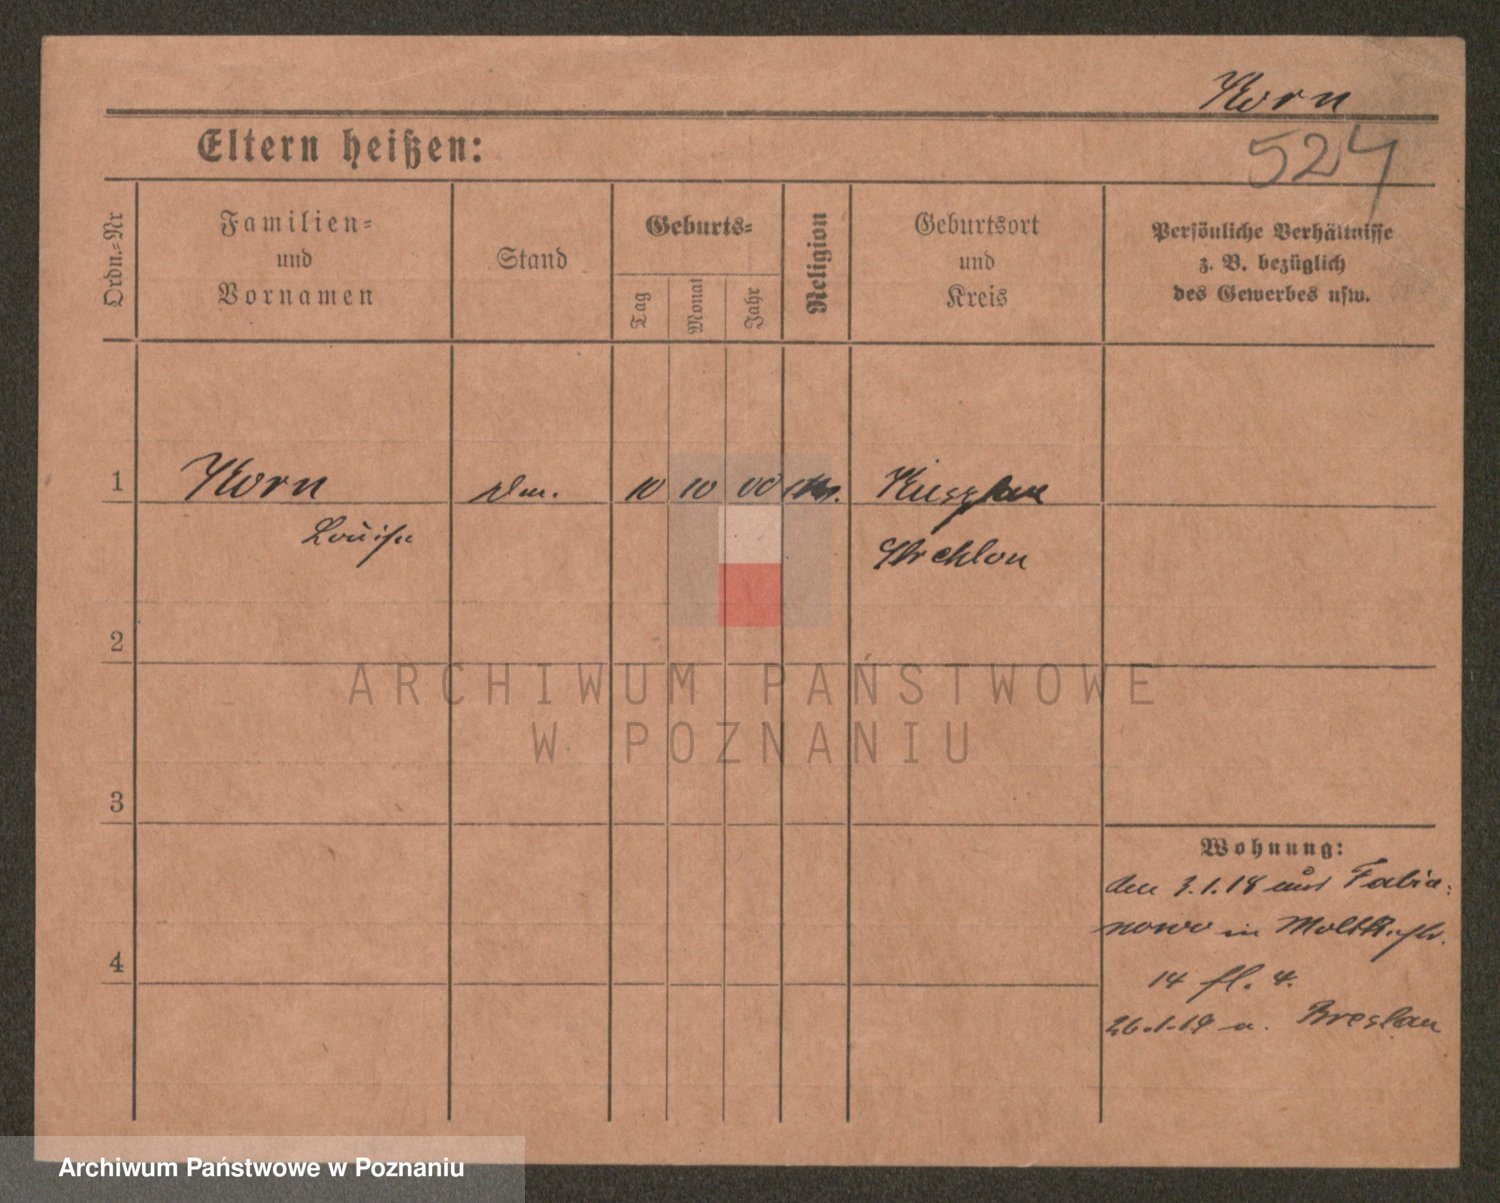 Korn
524
Eltern heißen:
Ordn.-Nr
Familien-
und
Vornamen
Stand
Geburts-
Tag
Monat
Jahr
Religion
Geburtsort
und
Kreis
Persönliche Verhältnisse
z. B. bezüglich
des Gewerbes usw.
1 Korn 10 10 00
Louise
Strehlen
2
3
4
ARCHIWUM PAŃSTWOWE
W POZNANIU
Wohnung:
den 3.1.18 aus Fabia-
nowo in Moltkestr.
14 fl. 4.
26.1.19 n. Breslau
Archiwum Państwowe w Poznaniu